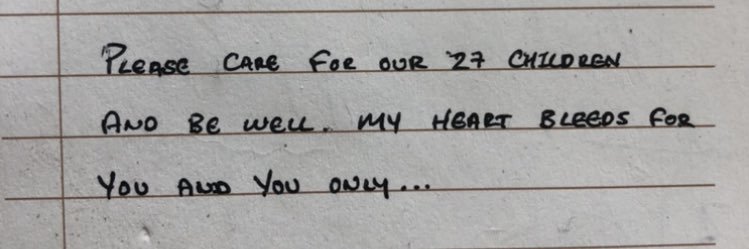 PLEASE CARE FOR OUR 27 CHILDREN
AND BE WELL. MY HEART BLEEDS FOR
YOU AND YOU ONLY...